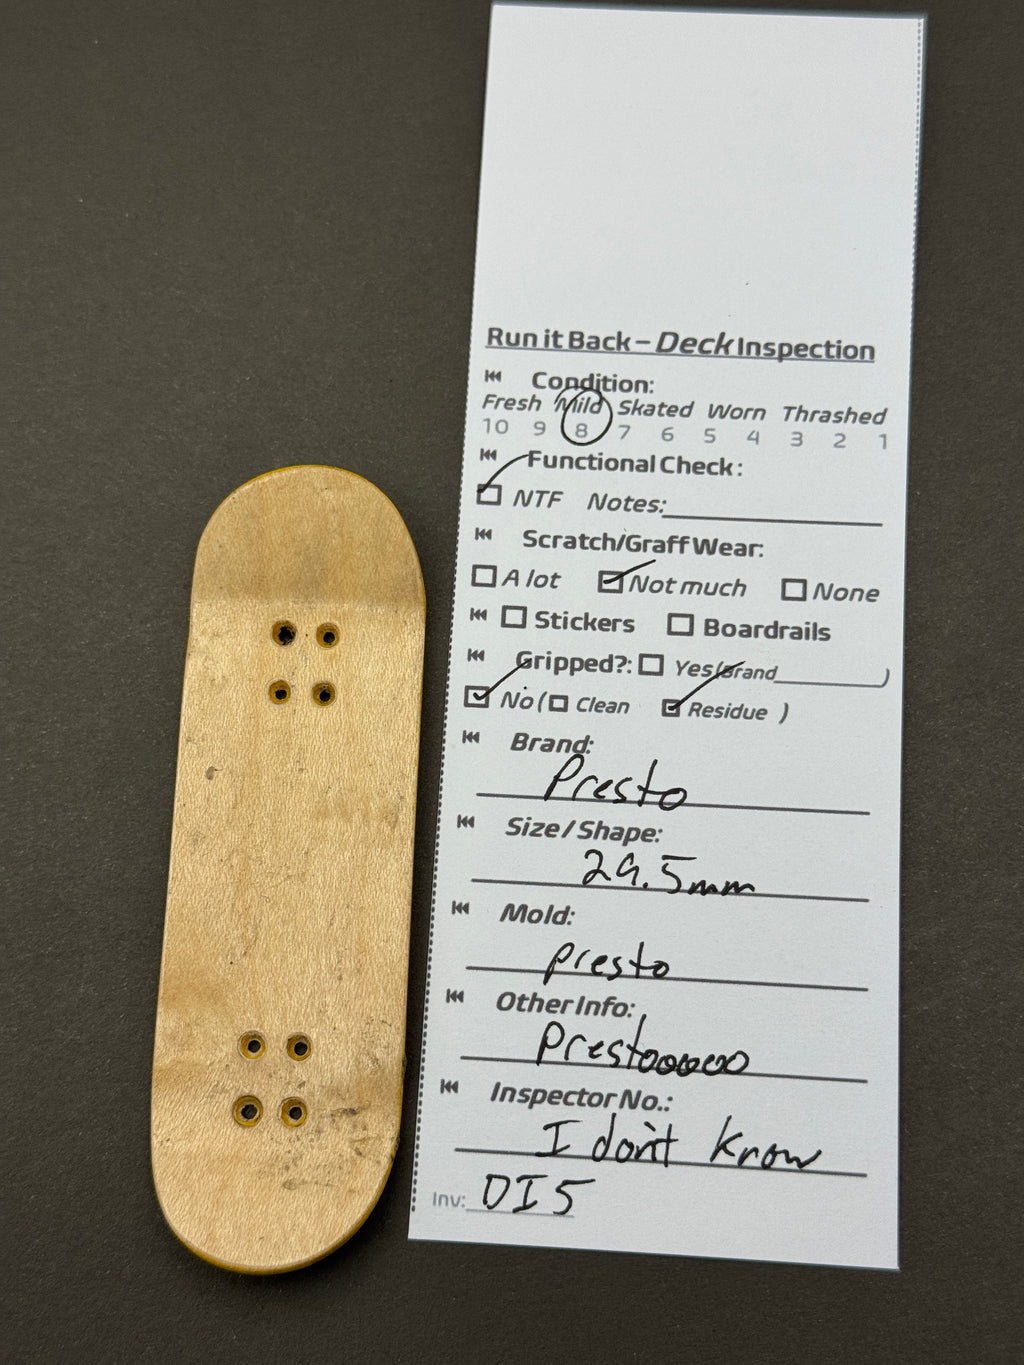 Run it Back – Deck Inspection
Condition:
Fresh Mild Skated Worn Thrashed
10 9 8 7 6 5 4 3 2 1
Functional Check:
NTF Notes:
Scratch/Graff Wear:
A lot Not much None
Stickers Boardrails
Gripped?: Yes(Brand )
No ( Clean Residue )
Brand:
Presto
Size / Shape:
29.5mm
Mold:
presto
Other Info:
Prestooooo
Inspector No.:
I don't know
Inv: DI5